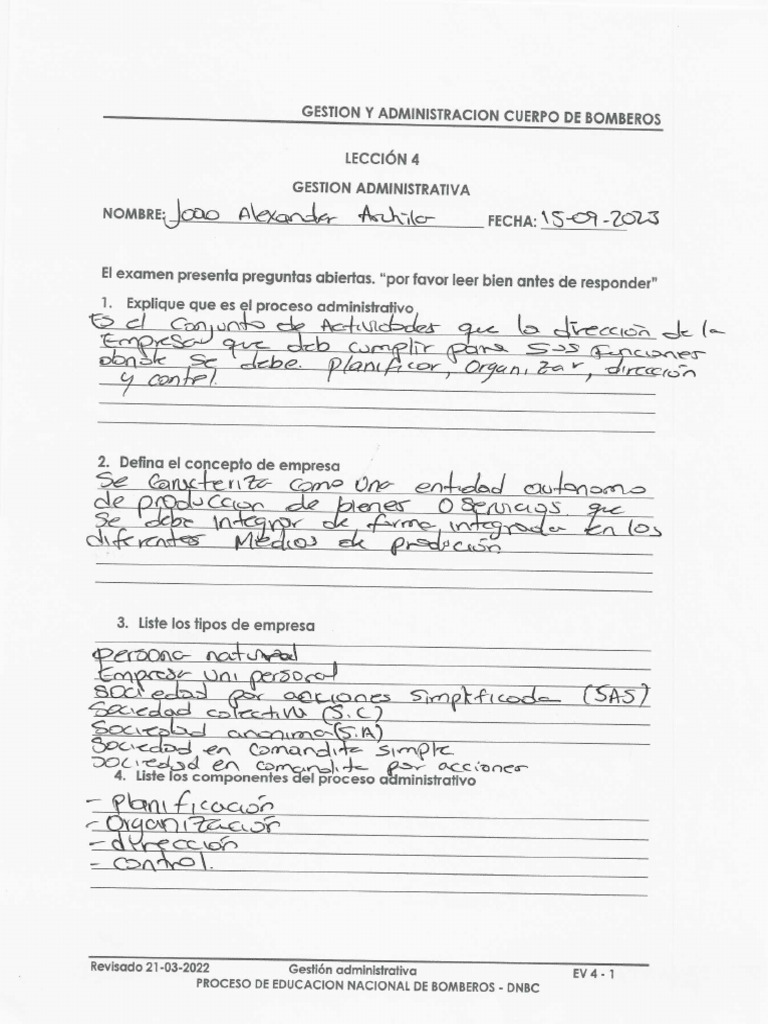 GESTION Y ADMINISTRACION CUERPO DE BOMBEROS
LECCIÓN 4
GESTION ADMINISTRATIVA
NOMBRE: Joao Alexander Archila FECHA: 15-09-2023
El examen presenta preguntas abiertas. "por favor leer bien antes de responder"
1. Explique que es el proceso administrativo
Es el conjunto de Actividades que la dirección de la
Empresa que deb cumplir para sus funciones
donde se debe. planificar, Organizar, dirección
y contel.
2. Defina el concepto de empresa
Se caracteriza como una entidad autonoma
de produccion de bienes o servicios que
se debe integrar de forma integrada en los
diferentes Medios de produción
3. Liste los tipos de empresa
persona natural
Empresa uni personal
sociedad por acciones simplificada (SAS)
Sociedad colectiva (S.C)
Sociedad anonima (S.A)
Sociedad en comandita simple
sociedad en comandita por acciones
4. Liste los componentes del proceso administrativo
- planificación
- Organización
- dirección
- control.
Revisado 21-03-2022 Gestión administrativa EV 4 - 1
PROCESO DE EDUCACION NACIONAL DE BOMBEROS - DNBC